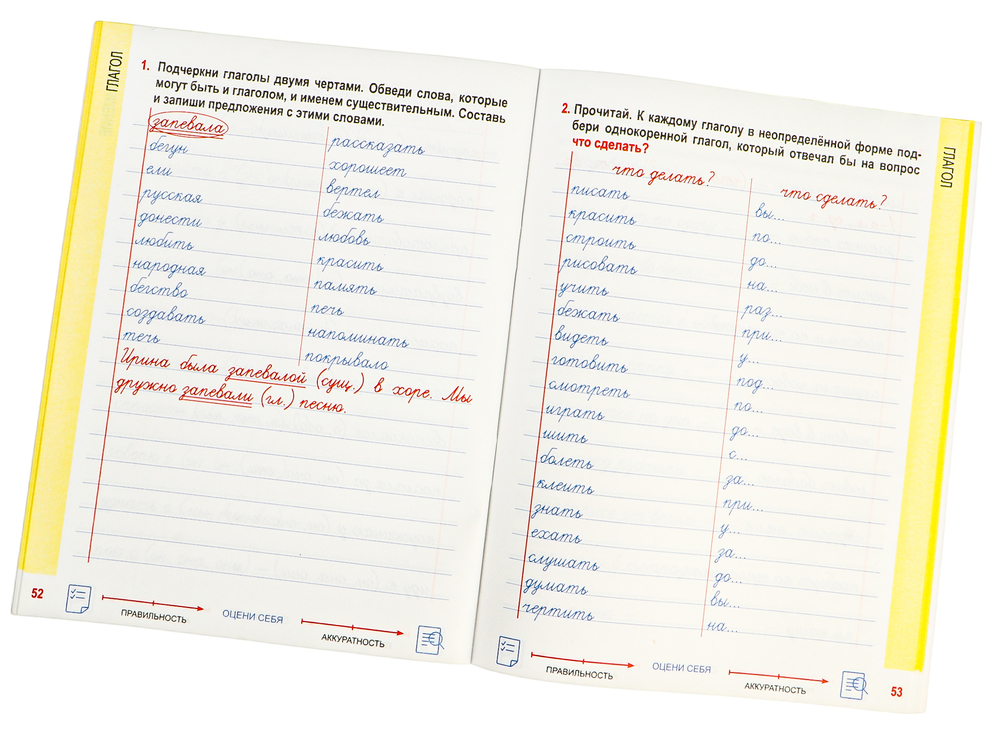 ГЛАГОЛ
1. Подчеркни глаголы двумя чертами. Обведи слова, которые
могут быть и глаголом, и именем существительным. Составь
и запиши предложения с этими словами.
запевала
бегун
ели
русская
донести
любить
народная
бегство
создавать
течь
рассказать
хорошеет
вертел
бежать
любовь
красить
память
печь
напоминать
покрывало
Ирина была запевалой (сущ.) в хоре. Мы
дружно запевали (гл.) песню.
52
ПРАВИЛЬНОСТЬ
ОЦЕНИ СЕБЯ
АККУРАТНОСТЬ
ГЛАГОЛ
2. Прочитай. К каждому глаголу в неопределённой форме под-
бери однокоренной глагол, который отвечал бы на вопрос
что сделать?
что делать? что сделать?
писать вы...
красить по...
строить до...
рисовать на...
учить раз...
бежать при...
видеть у...
готовить под...
смотреть по...
играть до...
шить с...
болеть за...
клеить при...
знать у...
ехать за...
слушать до...
думать вы...
чертить на...
ПРАВИЛЬНОСТЬ
ОЦЕНИ СЕБЯ
АККУРАТНОСТЬ
53